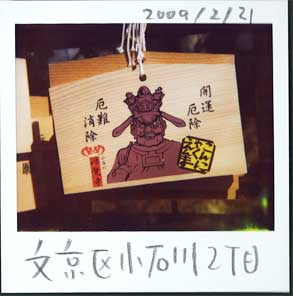 2009/2/21
開運
厄除
厄難
消除
源覚寺
文京区小石川2丁目